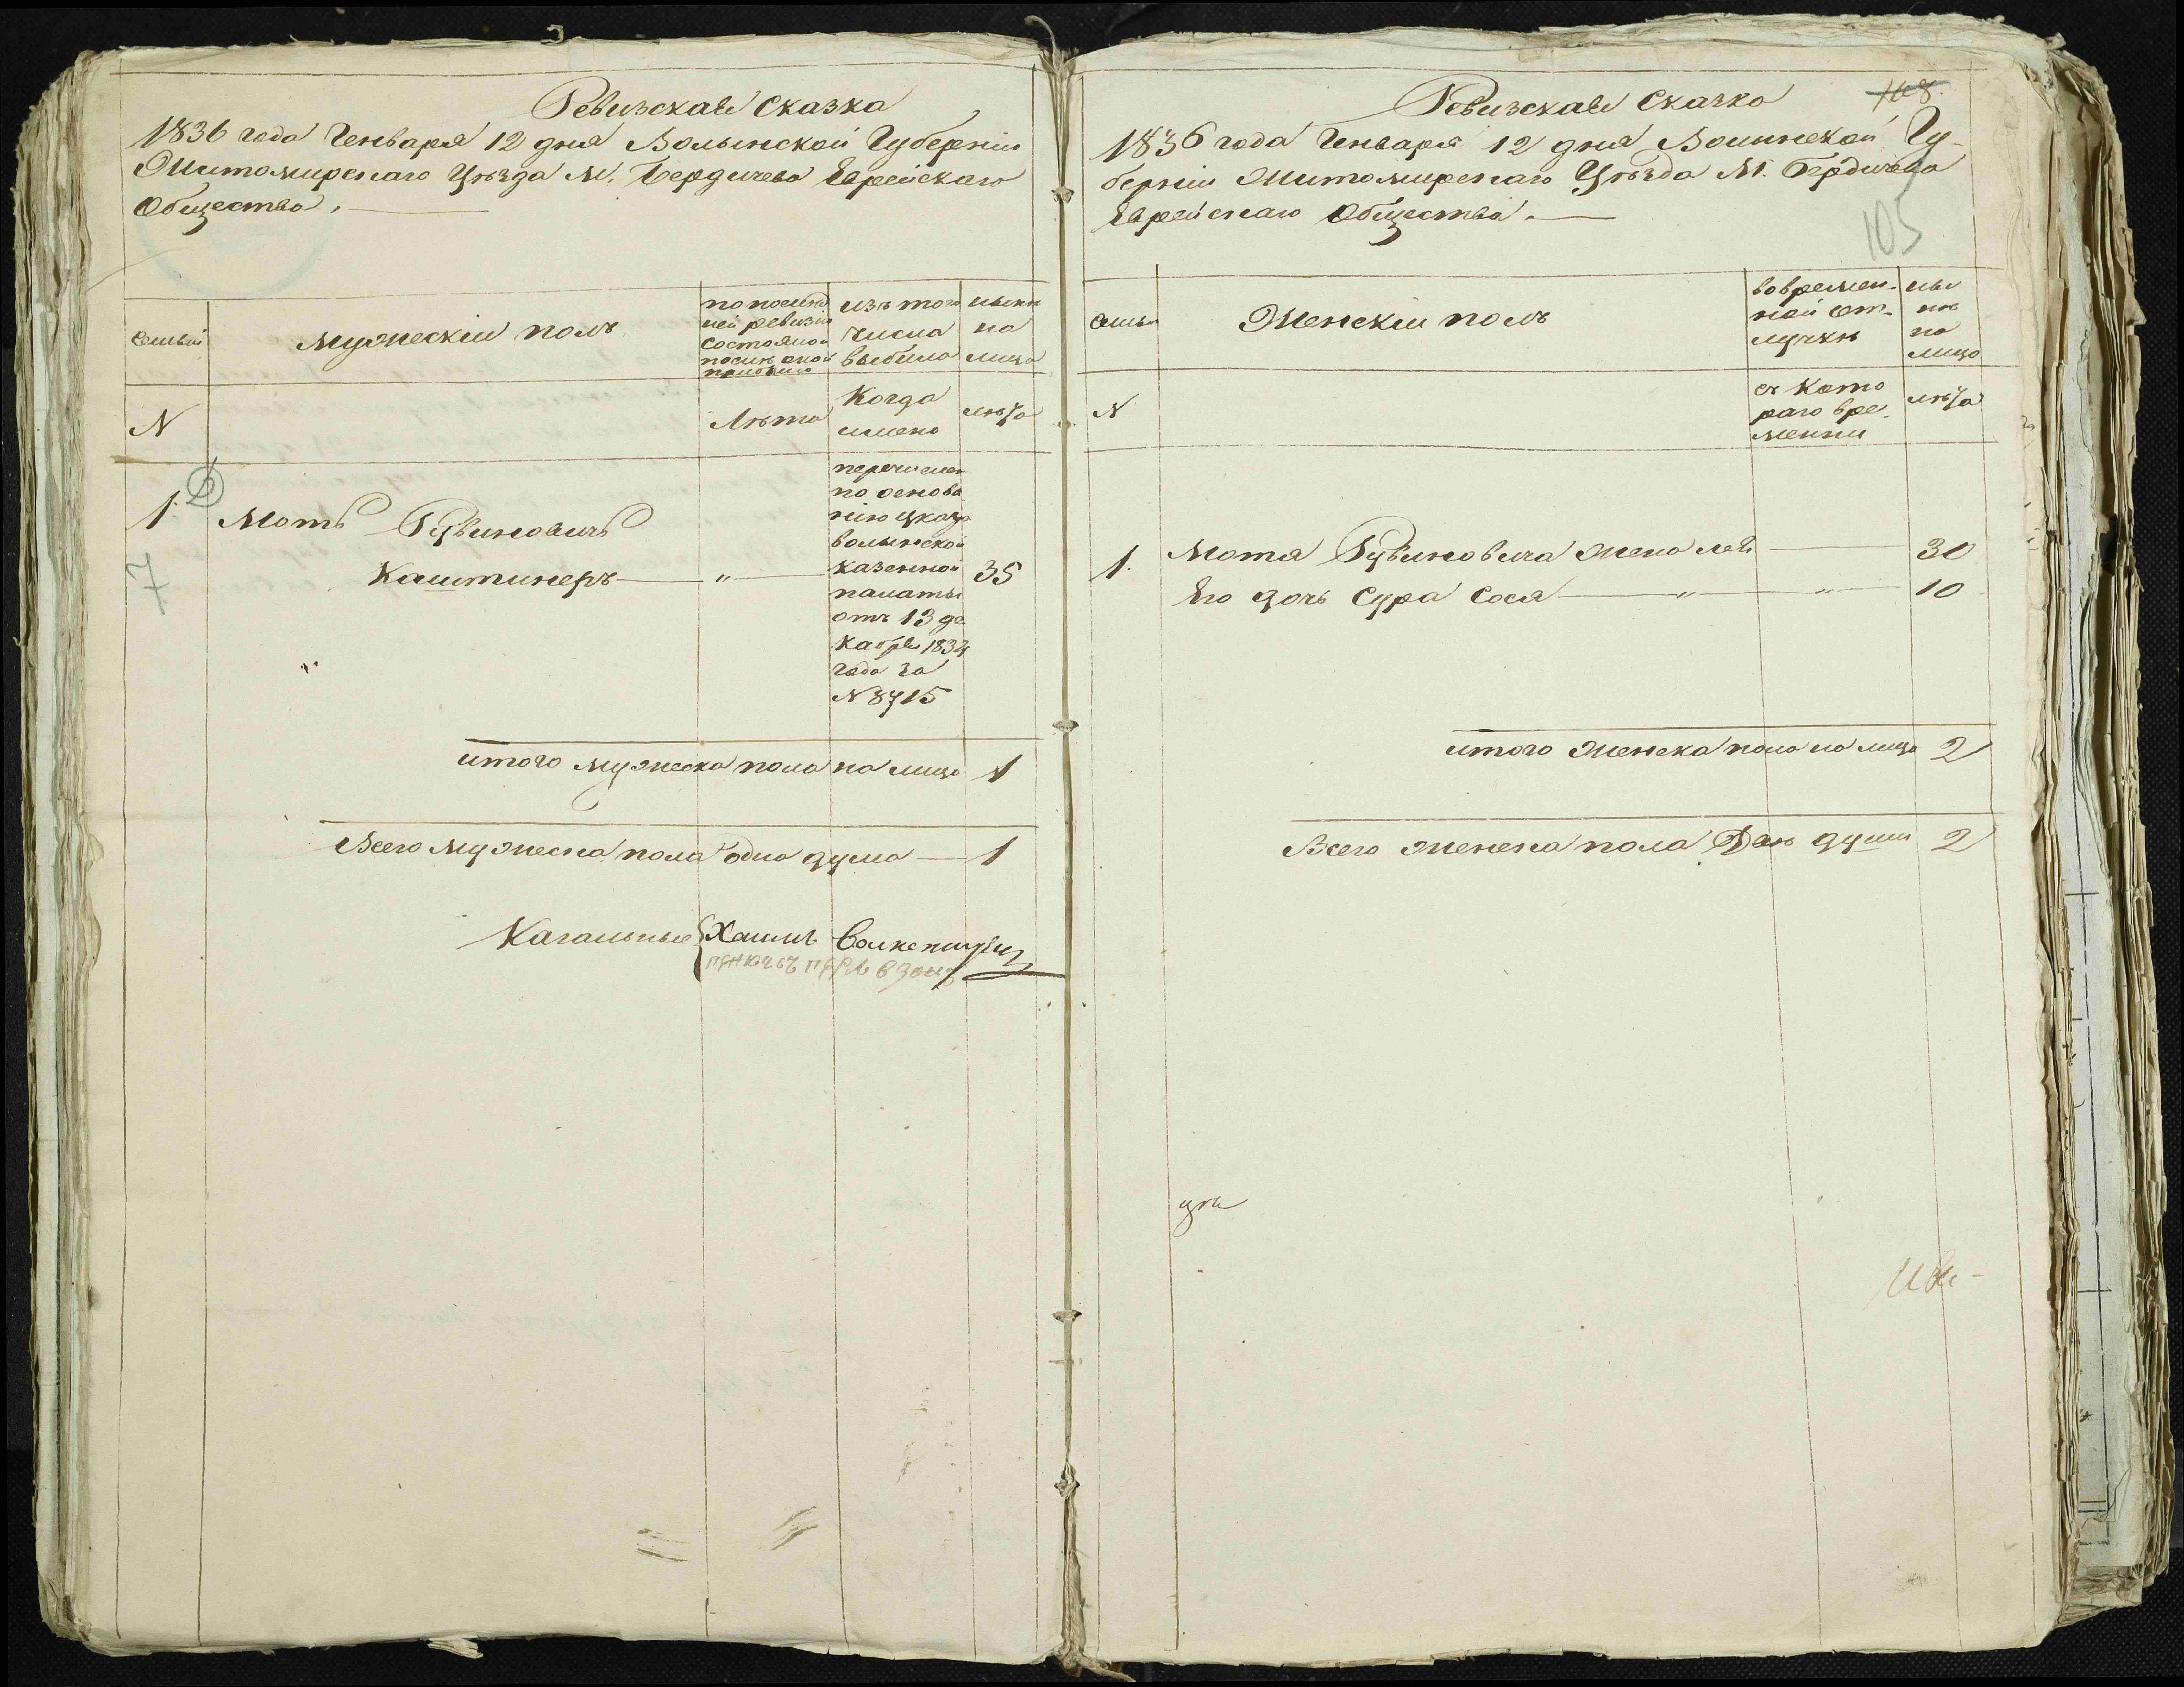 Ревизская Сказка
1836 года Генваря 12 дня Волынской Губернiи
Житомирскаго Уѣзда М. Бердичева Еврейскаго
Общества.
Семьи
Мужескiй полъ
по послед
ней ревизiи
состояло и
послѣ оной
прибыло
изъ того
числа
выбыло
нынѣ
на
лицо
N
Лѣта
Когда
имено
лѣта
1.
7
Мотъ Рувиновичъ
Каштинеръ — " —
перечислен
по основа
нiю указа
волынской
казенной
палаты
отъ 13 де
кабря 1834
года за
N 8715
35
итого мужеска пола на лицо 1
Всего мужеска пола одна душа — 1
Кагальные Хаимъ
Ревизская Сказка
108.
1836 года Генваря 12 дня Волинской Гу-
бернiи Житомирскаго Уѣзда М. Бердичева
Еврейскаго Общества.
105
Семьи
Женскiй полъ
во времен-
ной от-
лучкѣ
ны
нѣ
на
лицо
N
съ кото
раго вре-
менни
лѣта
1. Мотя Рувиновича жена Лея — 30
Его дочь Сура Сося — " — " — 10
итого женска пола на лицо 2
Всего женска пола Двѣ души 2